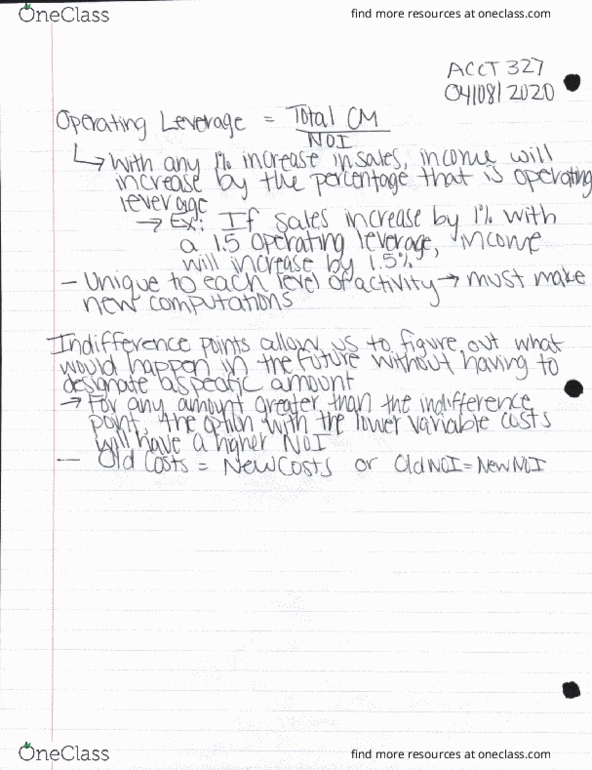 OneClass
find more resources at oneclass.com
ACCT 327
04/08/2020
Operating Leverage = Total CM
NOI
↳ With any 1% increase in sales, income will
increase by the percentage that is operating
leverage
→ Ex: If sales increase by 1% with
a 1.5 operating leverage, income
will increase by 1.5%
- Unique to each level of activity → must make
new computations
Indifference points allow us to figure out what
would happen in the future without having to
designate a specific amount
→ For any amount greater than the indifference
point, the option with the lower variable costs
will have a higher NOI
- Old Costs = New Costs or Old NOI = New NOI
OneClass
find more resources at oneclass.com